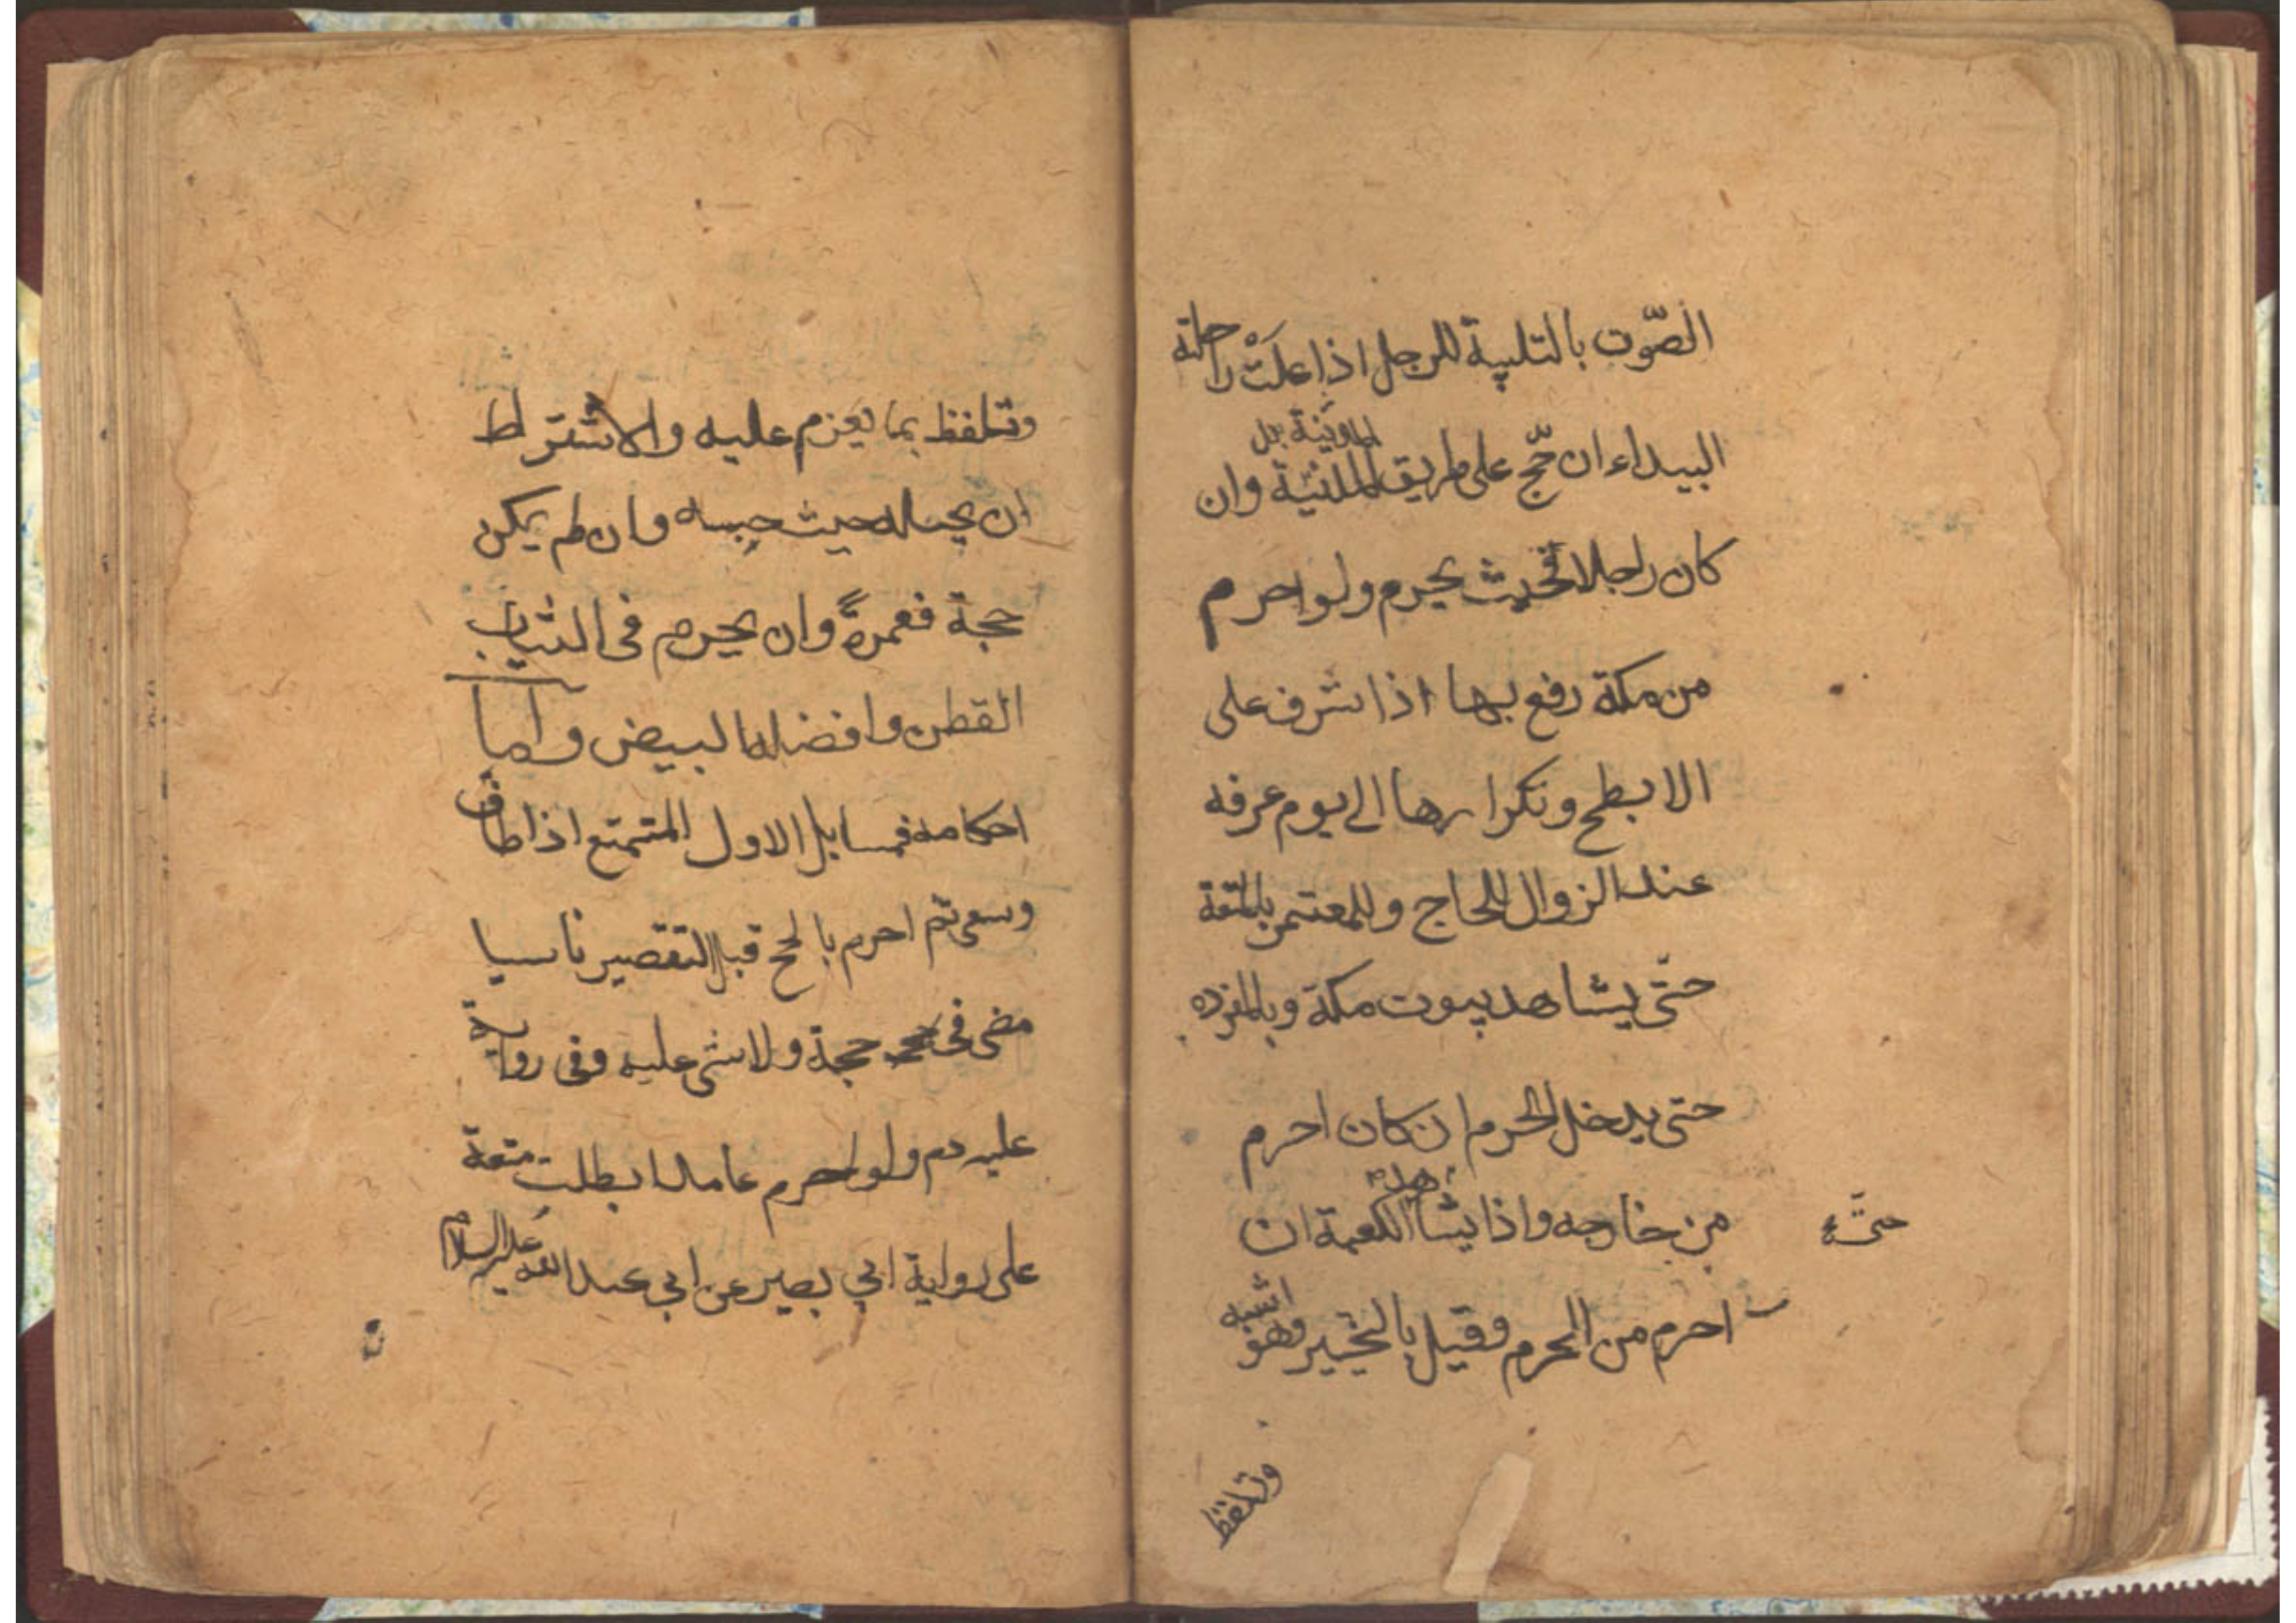 الصّوت بالتلبية للرجل اذا علَتْ راحلته
البيداء ان حّج على طريق المدينة وان
المدينة بل
كان راجلا فحيث يحرم ولو احرم
من مكة رفع بها اذا اشرف على
الابطح وتكرارها الى يوم عرفه
عند الزوال للحاج وللمعتمر بالمتعة
حتّى يشاهد بيوت مكة وبالمفرده
حتى يدخل الحرم ان كان احرم
من خارجه واذا يشاهد الكعبة ان
حتّى
احرم من الحرم وقيل بالتخيير وهو اشبه
وتلفظ
وتلفظ بما يعزم عليه والاشتراط
ان يحله حيث حبسه وان لم يكن
حجة فعمرةً وان يحرم فى الثياب
القطن وافضله البيض واما
احكامه فمسايل الاول المتمتع اذا طاف
وسعى ثم احرم بالحج قبل التقصير ناسيا
مضى فى حجة ولا شى عليه وفى رواية
عليه دم ولو احرم عامدا بطلت متعة
على رواية ابي بصير عن ابي عبدالله عليه السلام